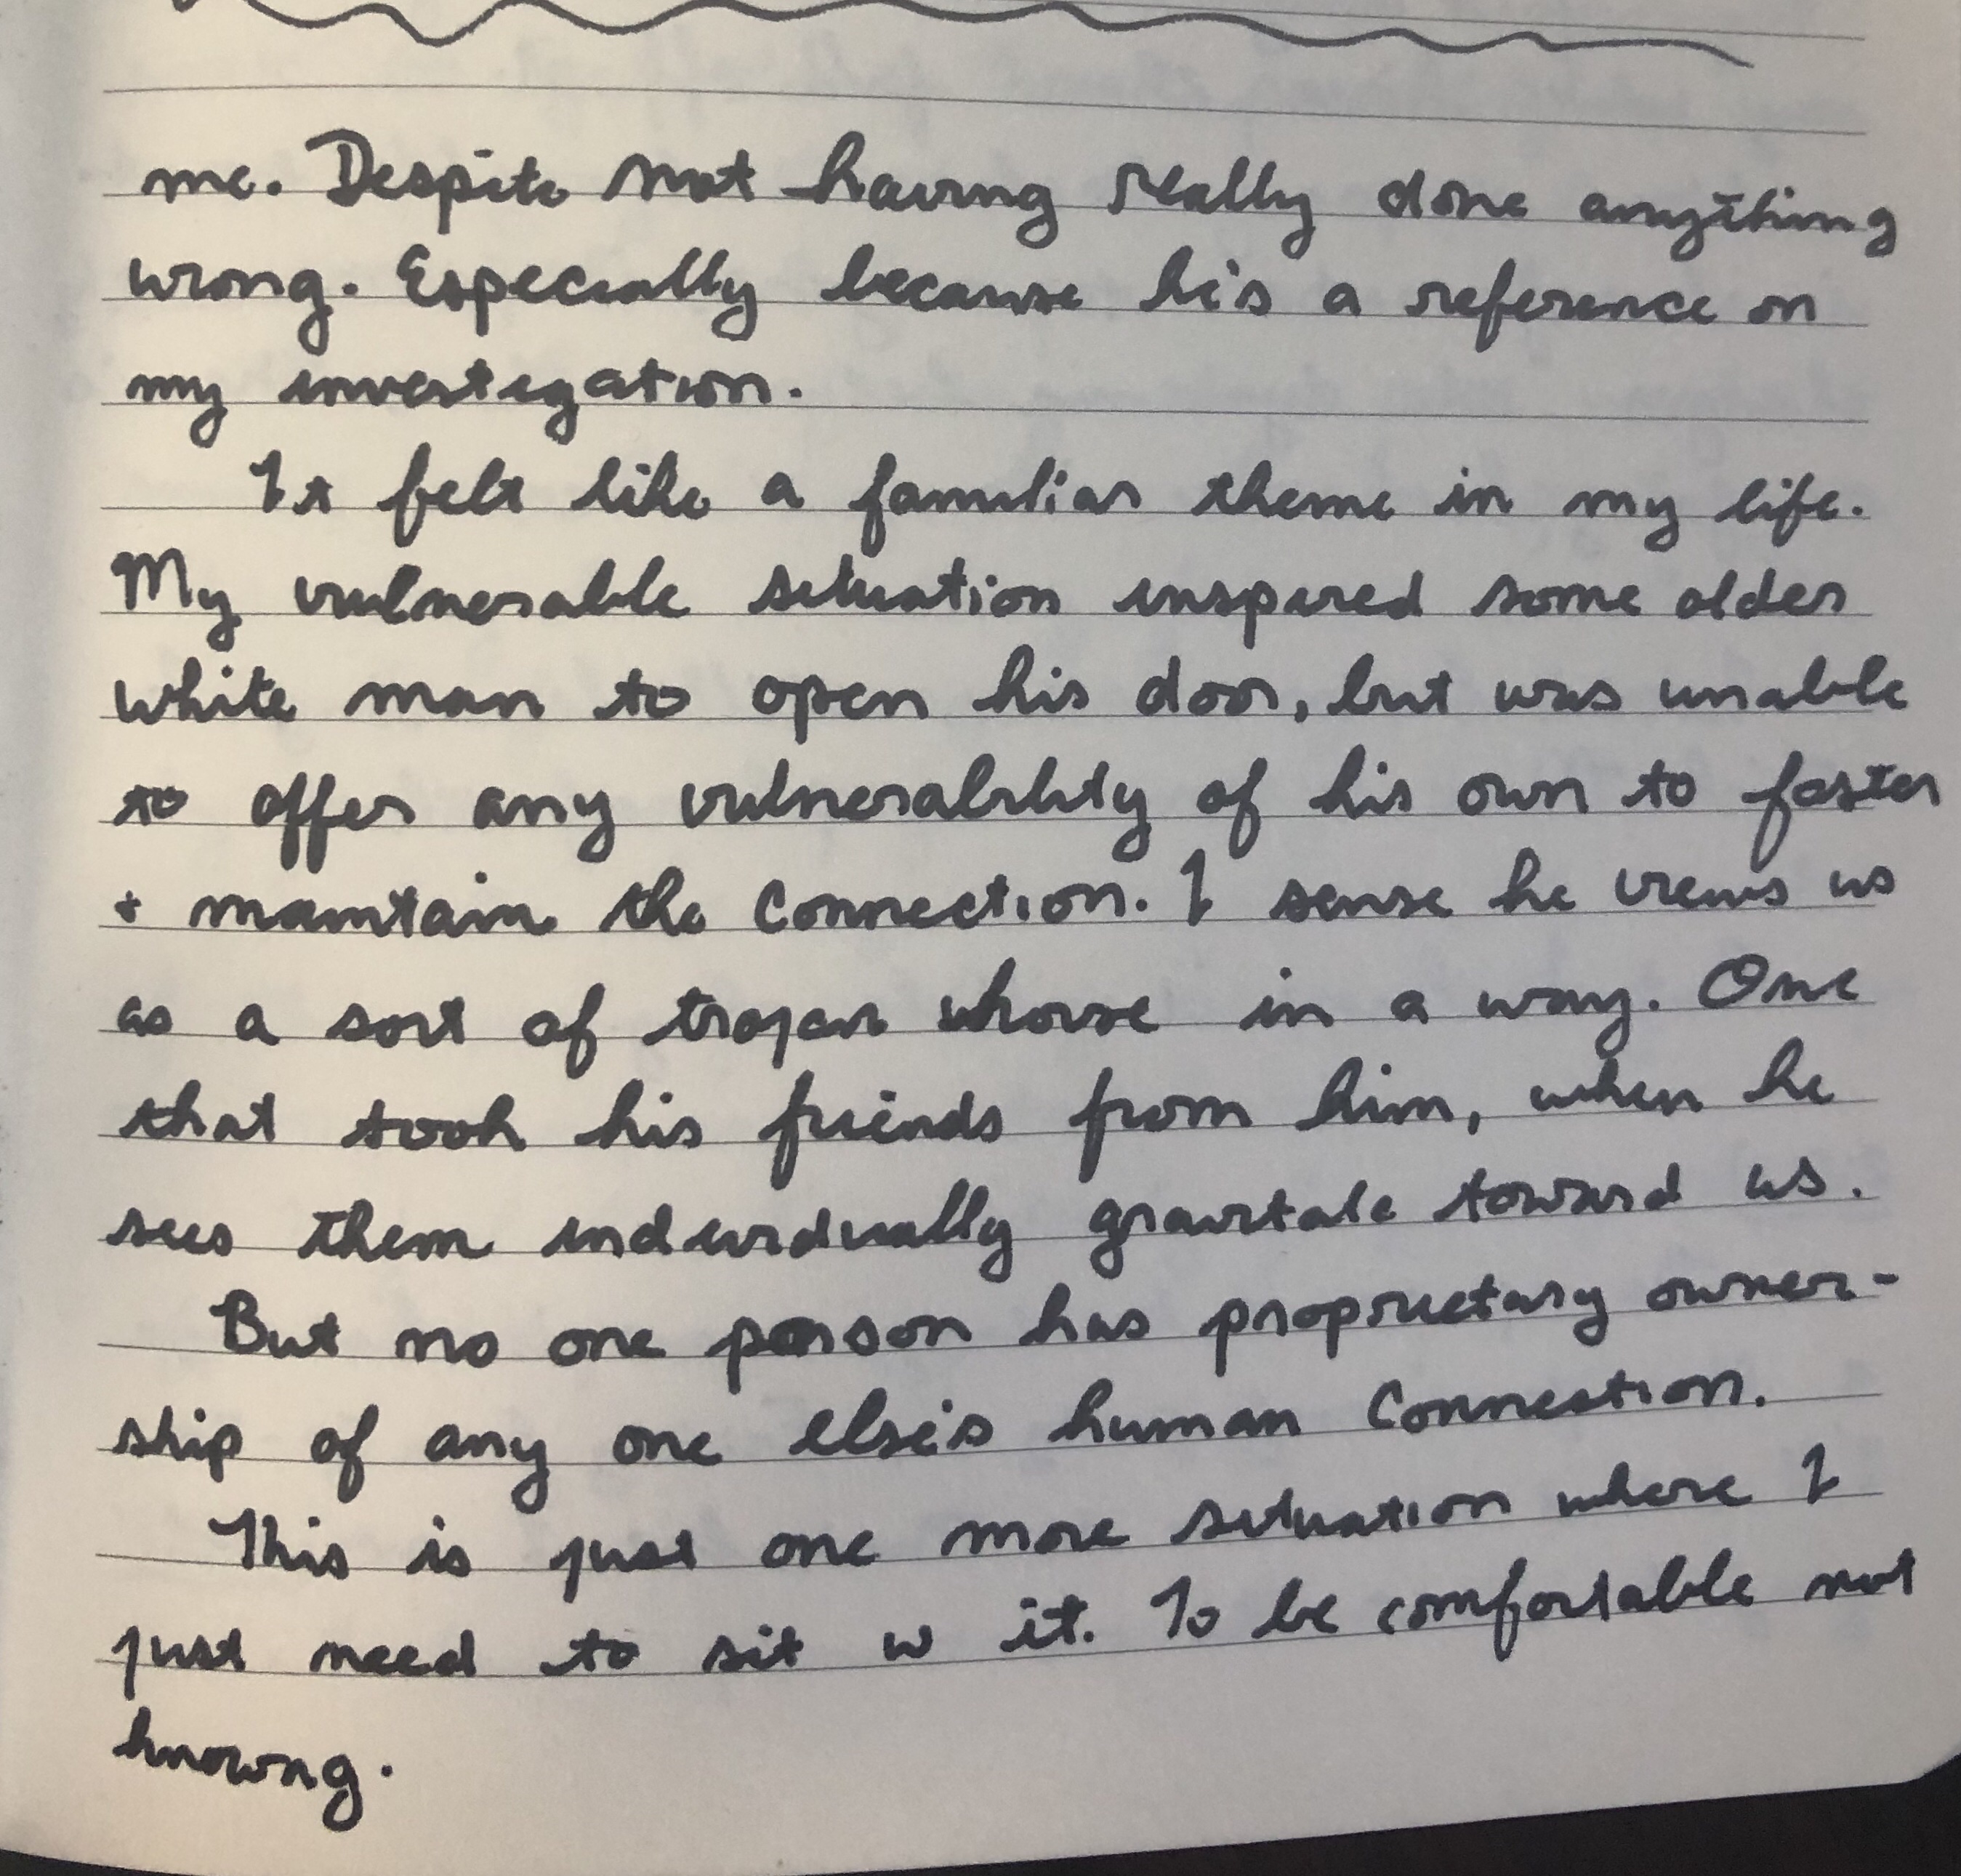 me. Despite not having really done anything
wrong. Especially because he's a reference on
my investigation.
It felt like a familiar theme in my life.
My vulnerable situation inspired some older
white man to open his door, but was unable
to offer any vulnerability of his own to foster
+ maintain the connection. I sense he views us
as a sort of trojan whorse in a way. One
that took his friends from him, when he
sees them individually gravitate toward us.
But no one person has proprietary owner-
ship of any one else's human connection.
This is just one more situation where I
just need to sit w it. To be comfortable not
knowng.